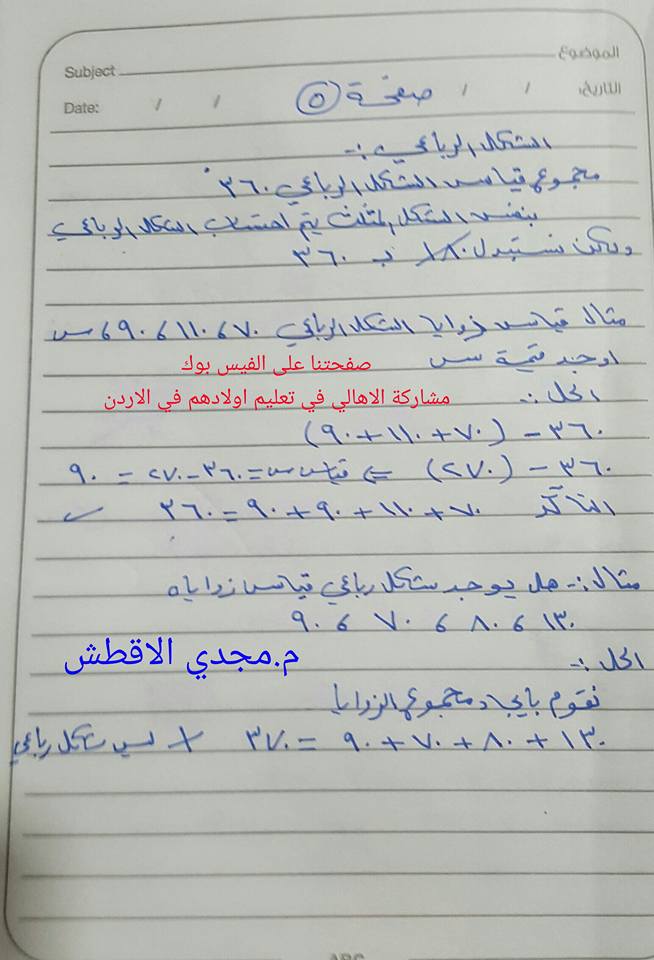 الموضوع
Subject
التاريخ: / /
Date: / /
صفحة ٥
الشكل الرباعي :-
مجموع قياس الشكل الرباعي ٣٦٠°
بنفس الشكل المثلث يتم احتساب الشكل الرباعي
ولكن نستبدل ١٨٠ بـ ٣٦٠
مثال قياس زوايا الشكل الرباعي ٧٠ ، ١١٠ ، ٩٠ ، س
اوجد قيمة س
صفحتنا على الفيس بوك
الحل :-
مشاركة الاهالي في تعليم اولادهم في الاردن
٣٦٠ - (٧٠ + ١١٠ + ٩٠)
٣٦٠ - (٢٧٠) ⇐ قياس س = ٣٦٠ - ٢٧٠ = ٩٠
التأكد ٧٠ + ١١٠ + ٩٠ + ٩٠ = ٣٦٠ ✓
مثال :- هل يوجد شكل رباعي قياس زواياه
١٣٠ ، ٨٠ ، ٧٠ ، ٩٠
م.مجدي الاقطش
الحل :-
نقوم بايجاد مجموع الزوايا
١٣٠ + ٨٠ + ٧٠ + ٩٠ = ٣٧٠ × ليس شكل رباعي